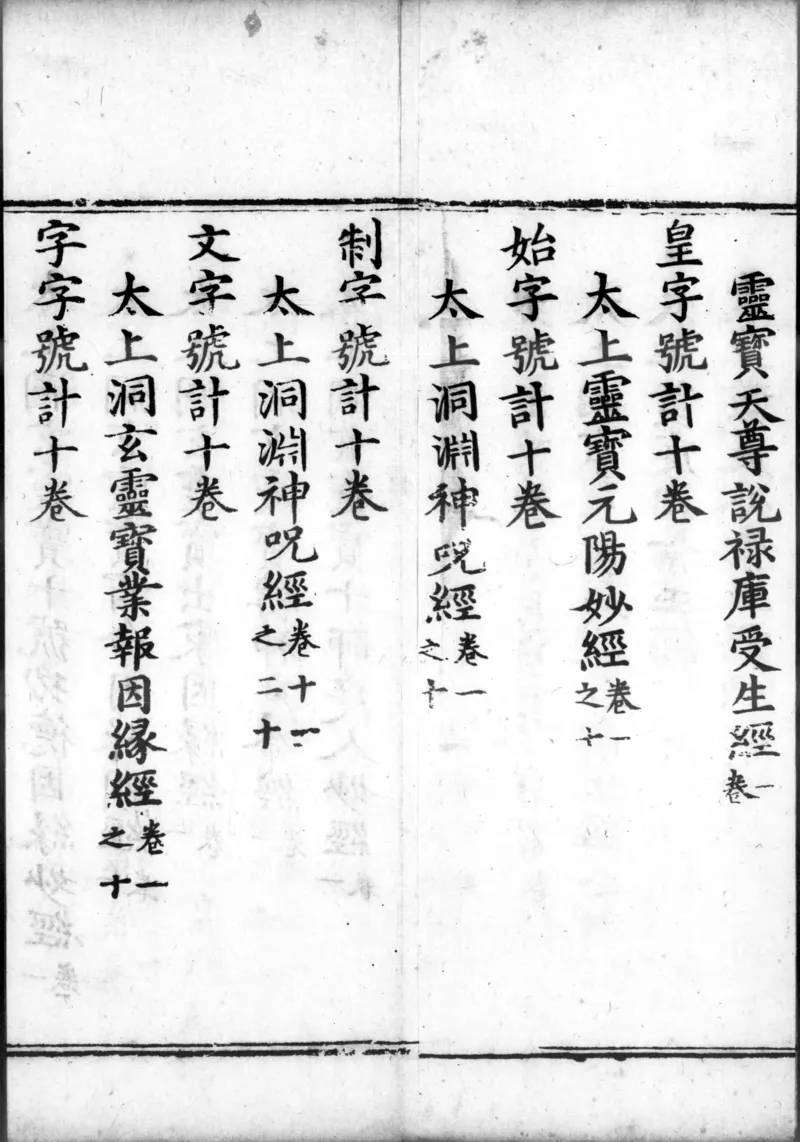 靈寶天尊說禄庫受生經一卷
皇字號計十卷
太上靈寶元陽妙經卷一之十
始字號計十卷
太上洞淵神咒經卷一之十
制字號計十卷
太上洞淵神呪經卷十一之二十
文字號計十卷
太上洞玄靈寶業報因縁經卷一之十
字字號計十卷